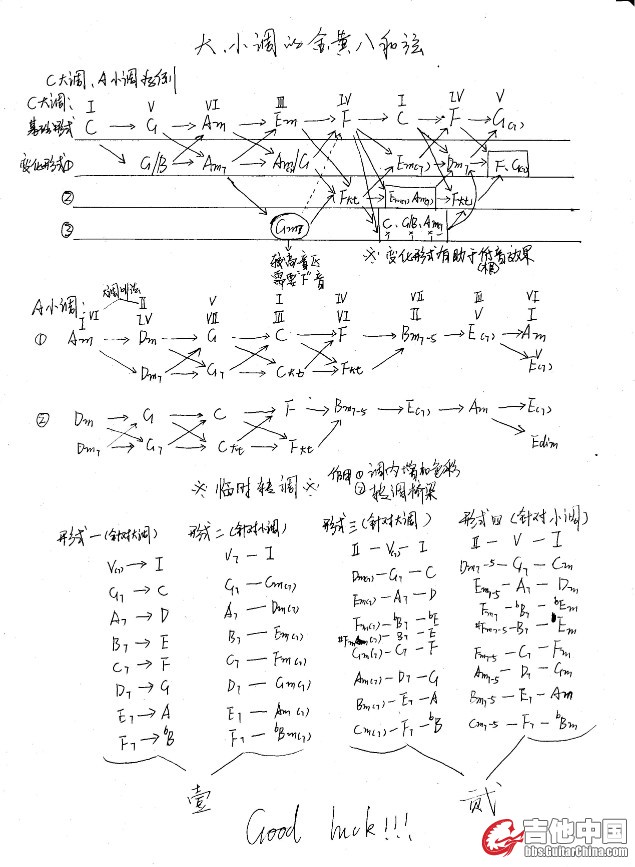 大、小调的金黄八和弦
C大调、A小调为例
C大调: I V VI III IV I IV V
基础形式 C → G → Am → Em → F → C → F → G(7)
变化形式① G/B → Am7 → Am/G Em(7) → Dm7 → F、G(7)
② F大七 → Em(7) Am(7) → F大七
③ Gm7 C、G/B、Am7
较高音区
需要下音
※ 变化形式有助于低音效果
A小调:
大调唱法
I II V I IV VII V I
VI IV VII III VI II III VI
① Am → Dm → G → C → F → Bm7-5 → E(7) → Am
Dm7 → G7 → C大七 → F大七 V
E(7)
② Dm → G → C → F → Bm7-5 → E(7) → Am → E(7)
Dm7 → G7 → C大七 → F大七 Edim
※ 临时转调 ※ 作用 ①调内增加色彩
②转调桥梁
形式一(针对大调) 形式二(针对小调) 形式三(针对大调) 形式四(针对小调)
V(7) → I V7 — I II — V(7) — I II — V — I
G7 → C G7 — Cm(7) Dm(7) — G7 — C Dm7-5 — G7 — Cm
A7 → D A7 — Dm(7) Em(7) — A7 — D Em7-5 — A7 — Dm
Fm(7) — bB7 — bE Fm7 — bB7 — bEm
B7 → E B7 — Em(7) #Fm(7) — B7 — E #Fm7-5 — B7 — Em
C7 → F C7 — Fm(7) Gm(7) — C7 — F
D7 → G D7 — Gm(7) Am(7) — D7 — G Am7-5 — D7 — Gm
E7 → A E7 — Am(7) Bm(7) — E7 — A Bm7-5 — E7 — Am
F7 → bB F7 — bBm(7) Cm(7) — F7 — bB Cm7-5 — F7 — bBm
壹 贰
Good luck!!!
吉他中国
bbs.GuitarChina.com